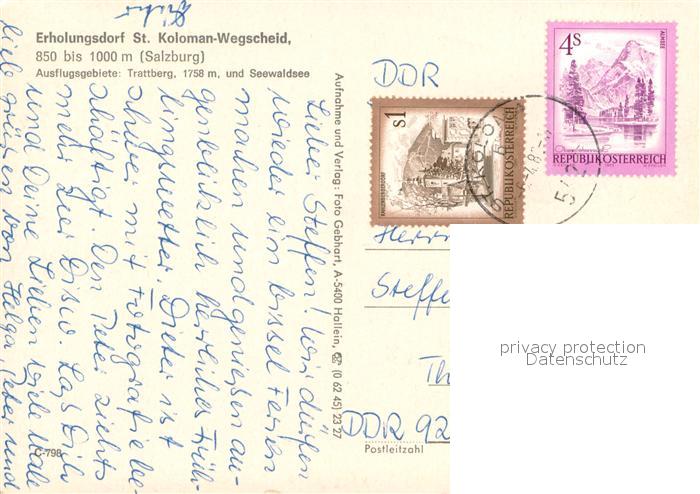 Erholungsdorf St. Koloman-Wegscheid,
850 bis 1000 m (Salzburg)
Ausflugsgebiete: Trattberg, 1758 m, und Seewaldsee
Lieber Steffen! Wir dürfen
wieder ein bissel Ferien
machen und genießen au-
genblicklich herrliches Früh-
lingswetter. Dieter ist
schwer mit Fotografie be-
schäftigt. Den Peter ziehts
mehr zur Disco. Laß Dich
und Deine Lieben viele Male
lieb grüßen von Helga, Peter und
Dieter
C-798
Aufnahme und Verlag: Foto Gebhart, A-5400 Hallein, ☎ (0 62 45) 23 27
DDR
S1
REPUBLIK ÖSTERREICH
4S
ALMSEE
REPUBLIK ÖSTERREICH
Herrn
Steffe
Th
DDR 92
Postleitzahl
privacy protection
Datenschutz